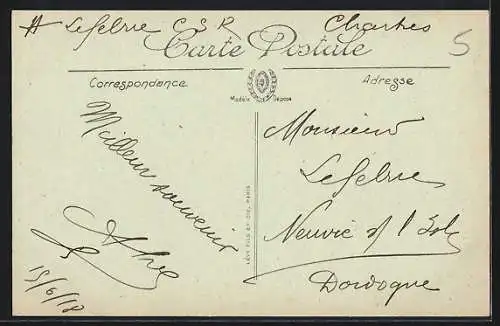 A Lefebvre C S R Chartres
5
Carte Postale
Correspondance
Adresse
Modèle Déposé
Meilleur souvenir
15/6/18
LÉVY FILS ET CIE, PARIS
Monsieur
Lefebvre
Neuvic s/ l'Isle
Dordogne